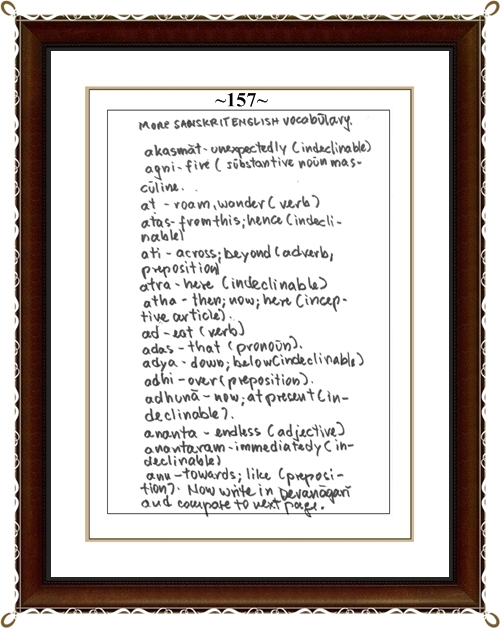 ~157~
MORE SANSKRIT ENGLISH vocabūlary.
akasmāt - unexpectedly (indeclinable)
agni - fire ( sūbstantive noūn mas-
cūline.
at - roam, wander ( verb )
atas - from this; hence (indecli-
nable)
ati - across; beyond (adverb,
preposition
atra - here (indeclinable)
atha - then; now; here (incep-
tive article).
ad - eat (verb)
adas - that (pronoūn).
adya - down; below (indeclinable)
adhi - over (preposition).
adhunā - now; at present (in-
declinable).
ananta - endless (adjective)
anantaram - immediatedy (in-
declinable)
anu - towards; like (preposi-
tion). Now write in Devanāgarī
and compare to next page.